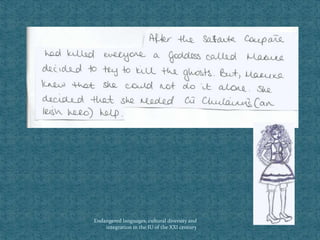 After the Santa Compaña
had killed everyone a goddess called
decided to try to kill the ghosts. But,
knew that she could not do it alone. She
decided that she needed Cú Chulainn's (an
Irish hero) help.
Endangered languages, cultural diversity and
integration in the EU of the XXI century